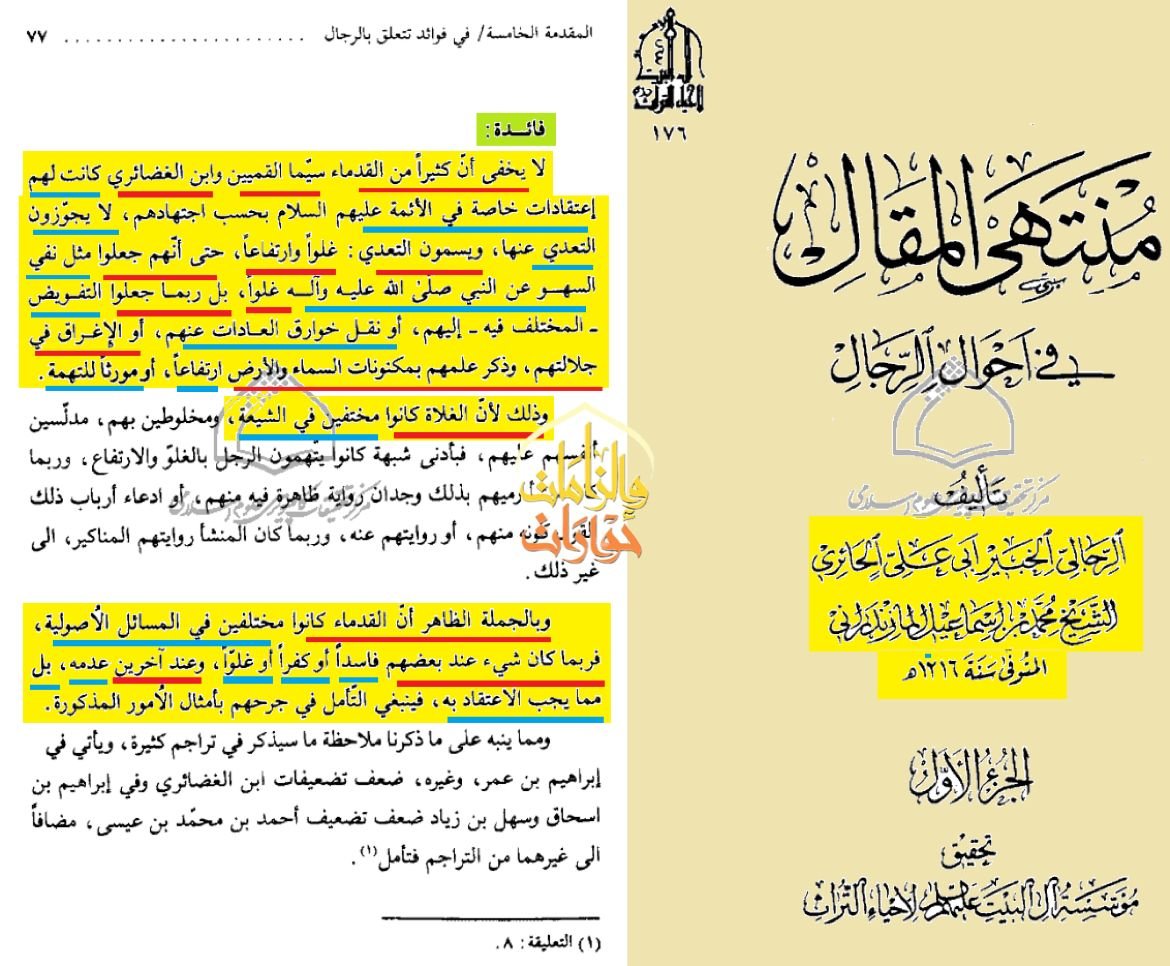 المقدمة الخامسة/ في فوائد تتعلق بالرجال ........................ ٧٧
فائدة :
لا يخفى أنّ كثيراً من القدماء سيّما القميين وابن الغضائري كانت لهم
إعتقادات خاصة في الأئمة عليهم السلام بحسب اجتهادهم، لا يجوّزون
التعدي عنها، ويسمون التعدي: غلواً وارتفاعاً، حتى أنّهم جعلوا مثل نفي
السهو عن النبي صلّى الله عليه وآله غلواً، بل ربما جعلوا التفويض
ـ المختلف فيه ـ إليهم، أو نقل خوارق العادات عنهم، أو الإغراق في
جلالتهم، وذكر علمهم بمكنونات السماء والأرض ارتفاعاً، أو مورثاً للتهمة .
وذلك لأنّ الغلاة كانوا مختفين في الشيعة، ومخلوطين بهم، مدلّسين
أنفسهم عليهم، فبأدنى شبهة كانوا يتّهمون الرجل بالغلوّ والارتفاع، وربما
بذلك وجدان رواية ظاهرة فيه منهم، أو ادعاء أرباب ذلك
القول كونه منهم، أو روايتهم عنه، وربما كان المنشأ روايتهم المناكير، الى
غير ذلك.
وبالجملة الظاهر أنّ القدماء كانوا مختلفين في المسائل الأصولية،
فربما كان شيء عند بعضهم فاسداً أو كفراً أو غلوّاً، وعند آخرين عدمه، بل
مما يجب الاعتقاد به، فينبغي التّأمل في جرحهم بأمثال الأمور المذكورة.
ومما ينبه على ما ذكرنا ملاحظة ما سيذكر في تراجم كثيرة، ويأتي في
إبراهيم بن عمر، وغيره، ضعف تضعيفات ابن الغضائري وفي إبراهيم بن
اسحاق وسهل بن زياد ضعف تضعيف أحمد بن محمّد بن عيسى، مضافاً
الى غيرهما من التراجم فتأمل(١) .
(١) التعليقة: ٨.
١٧٦
مُنتَهى المَقال
في أحوال الرّجال
تأليف
الرّجاليّ الخبير أبي علي الحائري
الشيخ محمد بن إسماعيل المازندراني
المتوفى سنة ١٢١٦ه
الجزء الأول
تحقيق
مؤسسة آل البيت عليهم السلام لإحياء التراث
حوارات
والزامات